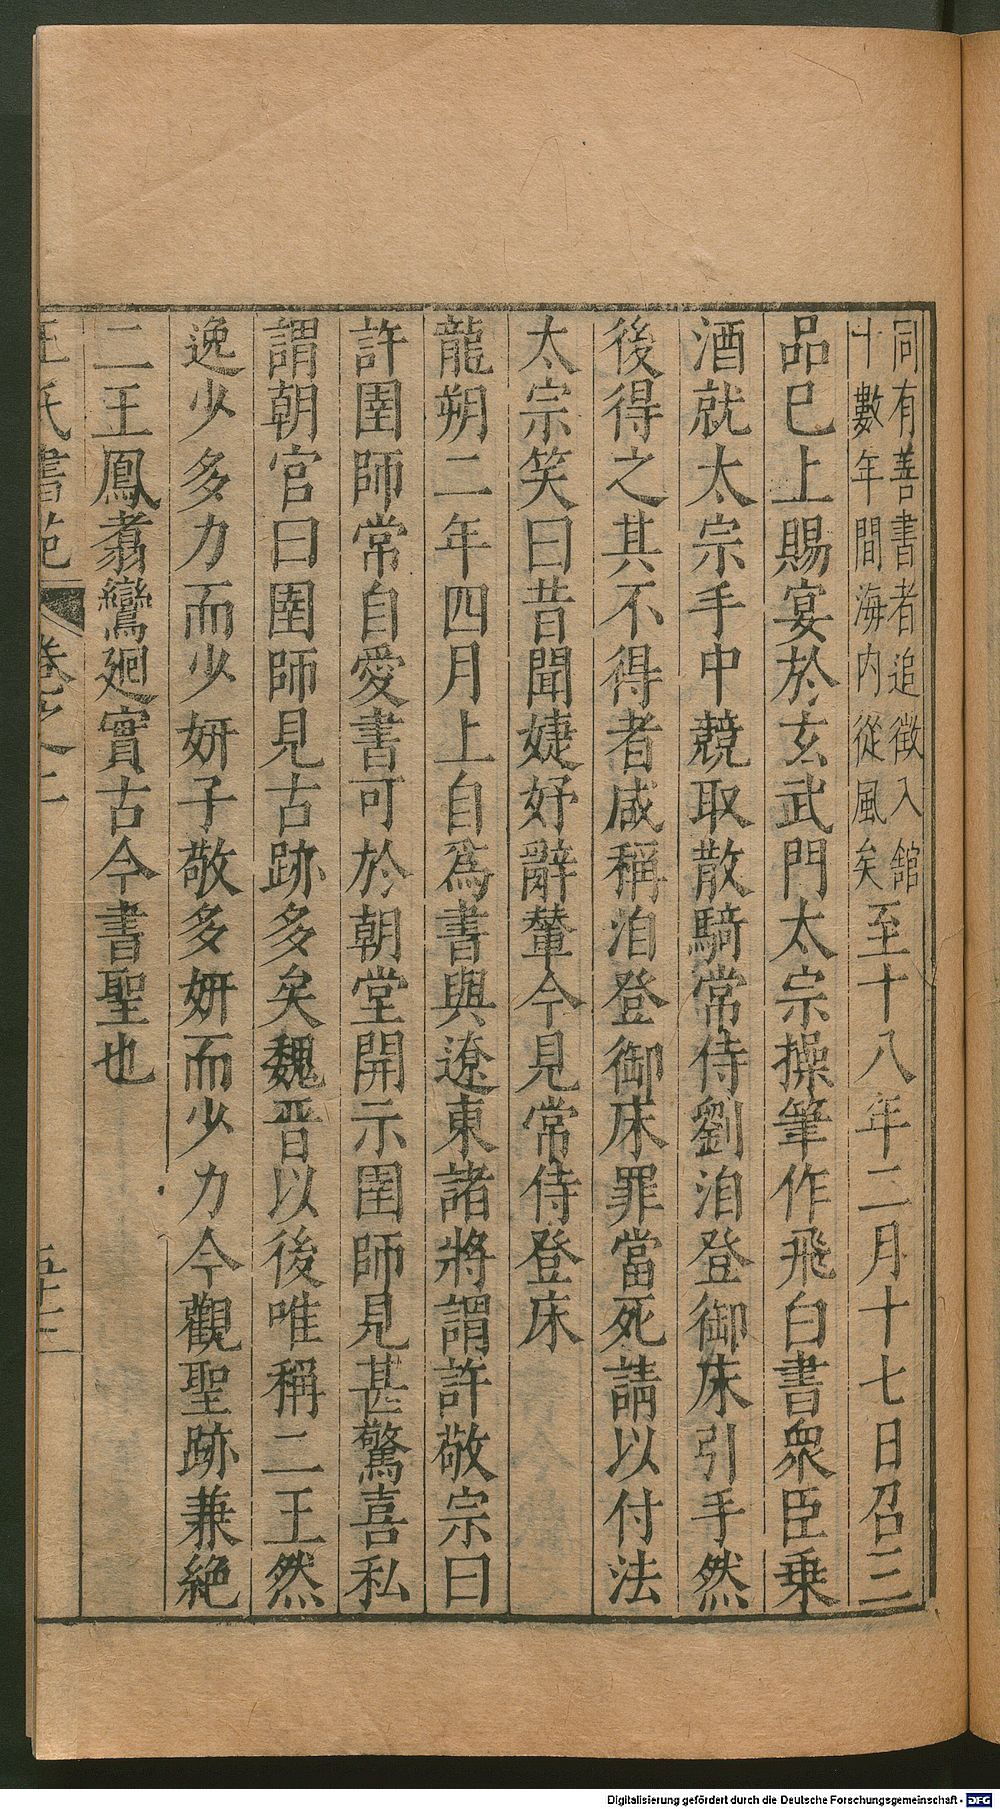 同有善書者追徴入館
十數年間海内從風矣至十八年二月十七日召三
品已上賜宴於玄武門太宗操筆作飛白書衆臣乗
酒就太宗手中競取散騎常侍劉洎登御床引手然
後得之其不得者咸稱洎登御床罪當死請以付法
太宗笑曰昔聞婕妤辭輦今見常侍登床
龍朔二年四月上自爲書與遼東諸將謂許敬宗曰
許圉師常自愛書可於朝堂開示圉師見甚驚喜私
謂朝官曰圉師見古跡多矣魏晋以後唯稱二王然
逸少多力而少妍子敬多妍而少力今觀聖跡兼絶
二王鳳翥鸞廻實古今書聖也
王氏書苑 卷之二 五十二
Digitalisierung gefördert durch die Deutsche Forschungsgemeinschaft - DFG